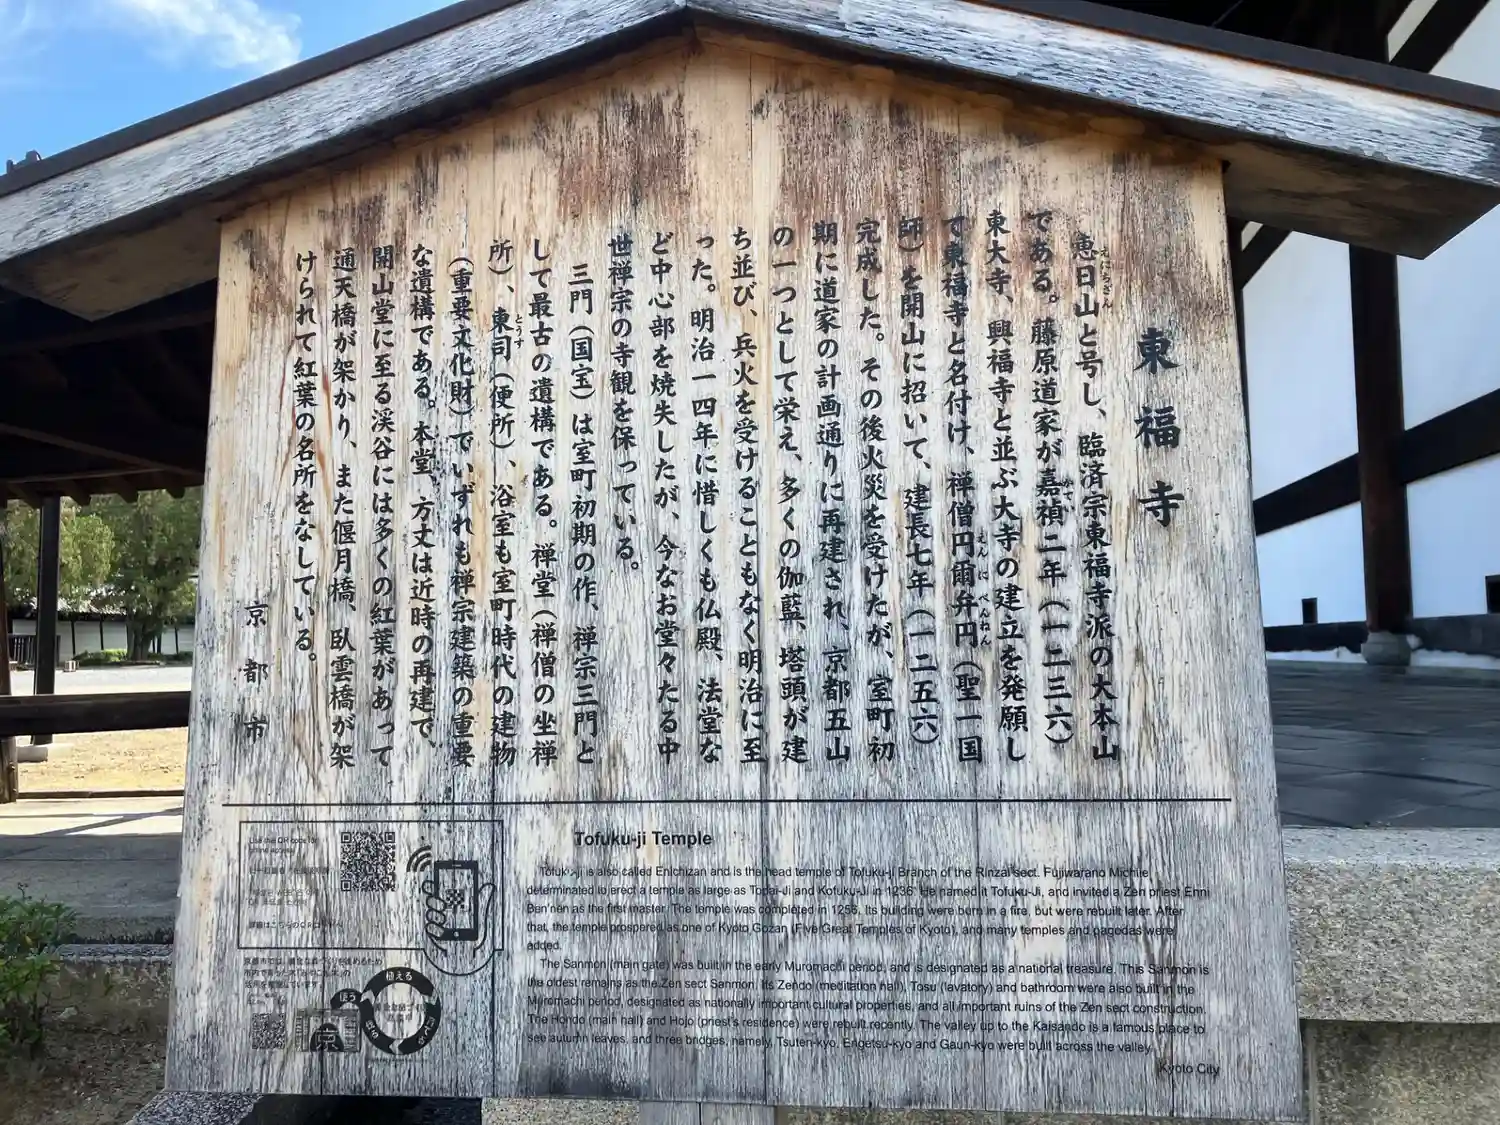 東福寺
恵日山と号し、臨済宗東福寺派の大本山
えにちざん
である。藤原道家が嘉禎二年（一二三六）
かてい
東大寺、興福寺と並ぶ大寺の建立を発願し
て東福寺と名付け、禅僧円爾弁円（聖一国
えんに べんねん
師）を開山に招いて、建長七年（一二五六）
完成した。その後火災を受けたが、室町初
期に道家の計画通りに再建され、京都五山
の一つとして栄え、多くの伽藍、塔頭が建
ち並び、兵火を受けることもなく明治に至
った。明治一四年に惜しくも仏殿、法堂な
ど中心部を焼失したが、今なお堂々たる中
世禅宗の寺観を保っている。
三門（国宝）は室町初期の作、禅宗三門と
して最古の遺構である。禅堂（禅僧の坐禅
所）、東司（便所）、浴室も室町時代の建物
とうす
（重要文化財）でいずれも禅宗建築の重要
な遺構である。本堂、方丈は近時の再建で、
開山堂に至る渓谷には多くの紅葉があって
通天橋が架かり、また偃月橋、臥雲橋が架
けられて紅葉の名所をなしている。
京都市
Tofuku-ji Temple
Tofuku-ji is also called Enichizan and is the head temple of Tofuku-ji Branch of the Rinzai sect. Fujiwarano Michiie
determinated to erect a temple as large as Todai-Ji and Kofuku-Ji in 1236. He named it Tofuku-Ji, and invited a Zen priest Enni
Ben'nen as the first master. The temple was completed in 1256. Its building were burn in a fire, but were rebuilt later. After
that, the temple prospered as one of Kyoto Gozan (Five Great Temples of Kyoto), and many temples and pagodas were
added.
The Sanmon (main gate) was built in the early Muromachi period, and is designated as a national treasure. This Sanmon is
the oldest remains as the Zen sect Sanmon. Its Zendo (meditation hall), Tosu (lavatory) and bathroom were also built in the
Muromachi period, designated as nationally important cultural properties, and all important ruins of the Zen sect construction.
The Hondo (main hall) and Hojo (priest's residence) were rebuilt recently. The valley up to the Kaisando is a famous place to
see autumn leaves, and three bridges, namely, Tsuten-kyo, Engetsu-kyo and Gaun-kyo were built across the valley.
Kyoto City
Use the QR code for
植える
使う
京